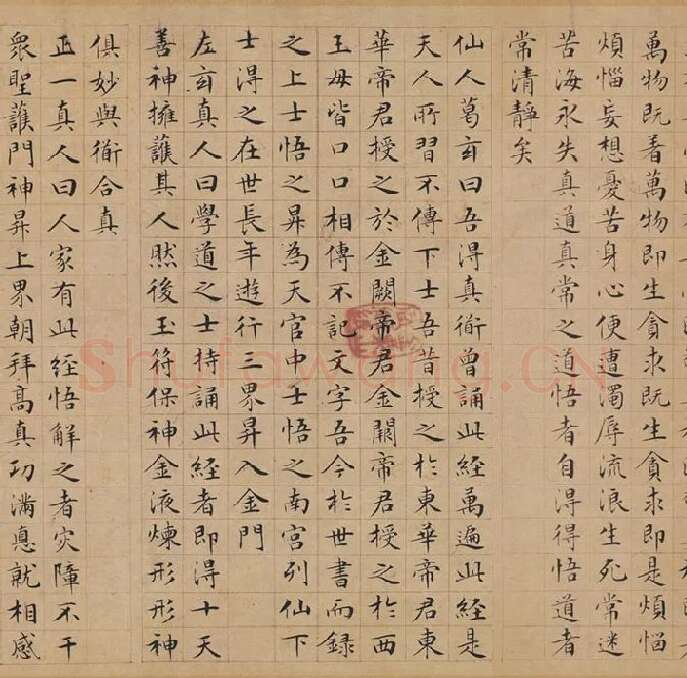 萬物既着萬物即生貪求既生貪求即是煩惱
煩惱妄想憂苦身心便遭濁辱流浪生死常迷
苦海永失真道真常之道悟者自得得悟道者
常清靜矣
仙人葛玄曰吾得真衜曾誦此經萬遍此經是
天人所習不傳下士吾昔授之於東華帝君東
華帝君授之於金闕帝君金闕帝君授之於西
王母皆口口相傳不記文字吾今於世書而録
之上士悟之昇為天官中士悟之南宮列仙下
士得之在世長年遊行三界昇入金門
左玄真人曰學道之士持誦此經者即得十天
善神擁護其人然後玉符保神金液煉形形神
俱妙與衜合真
正一真人曰人家有此經悟解之者灾障不干
衆聖護門神昇上界朝拜高真功滿悳就相感
Shufawang.CN